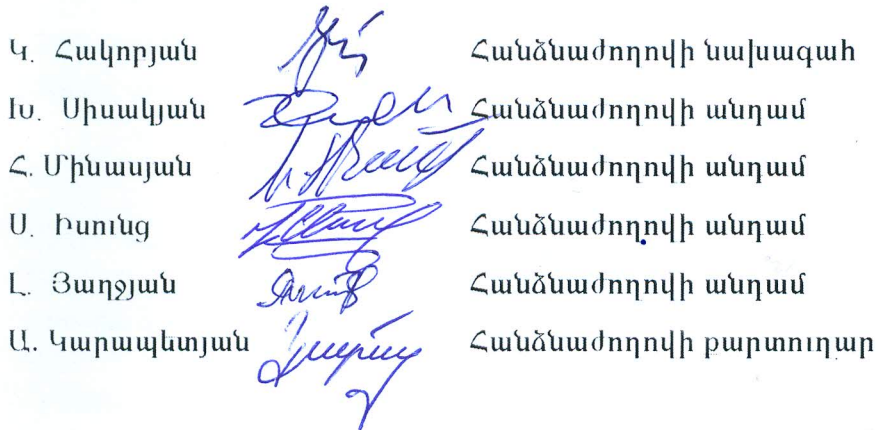 Կ. Հակոբյան Հանձնաժողովի նախագահ
Խ. Սիսակյան Հանձնաժողովի անդամ
Հ. Մինասյան Հանձնաժողովի անդամ
Ս. Իսունց Հանձնաժողովի անդամ
Լ. Յաղջյան Հանձնաժողովի անդամ
Ա. Կարապետյան Հանձնաժողովի քարտուղար